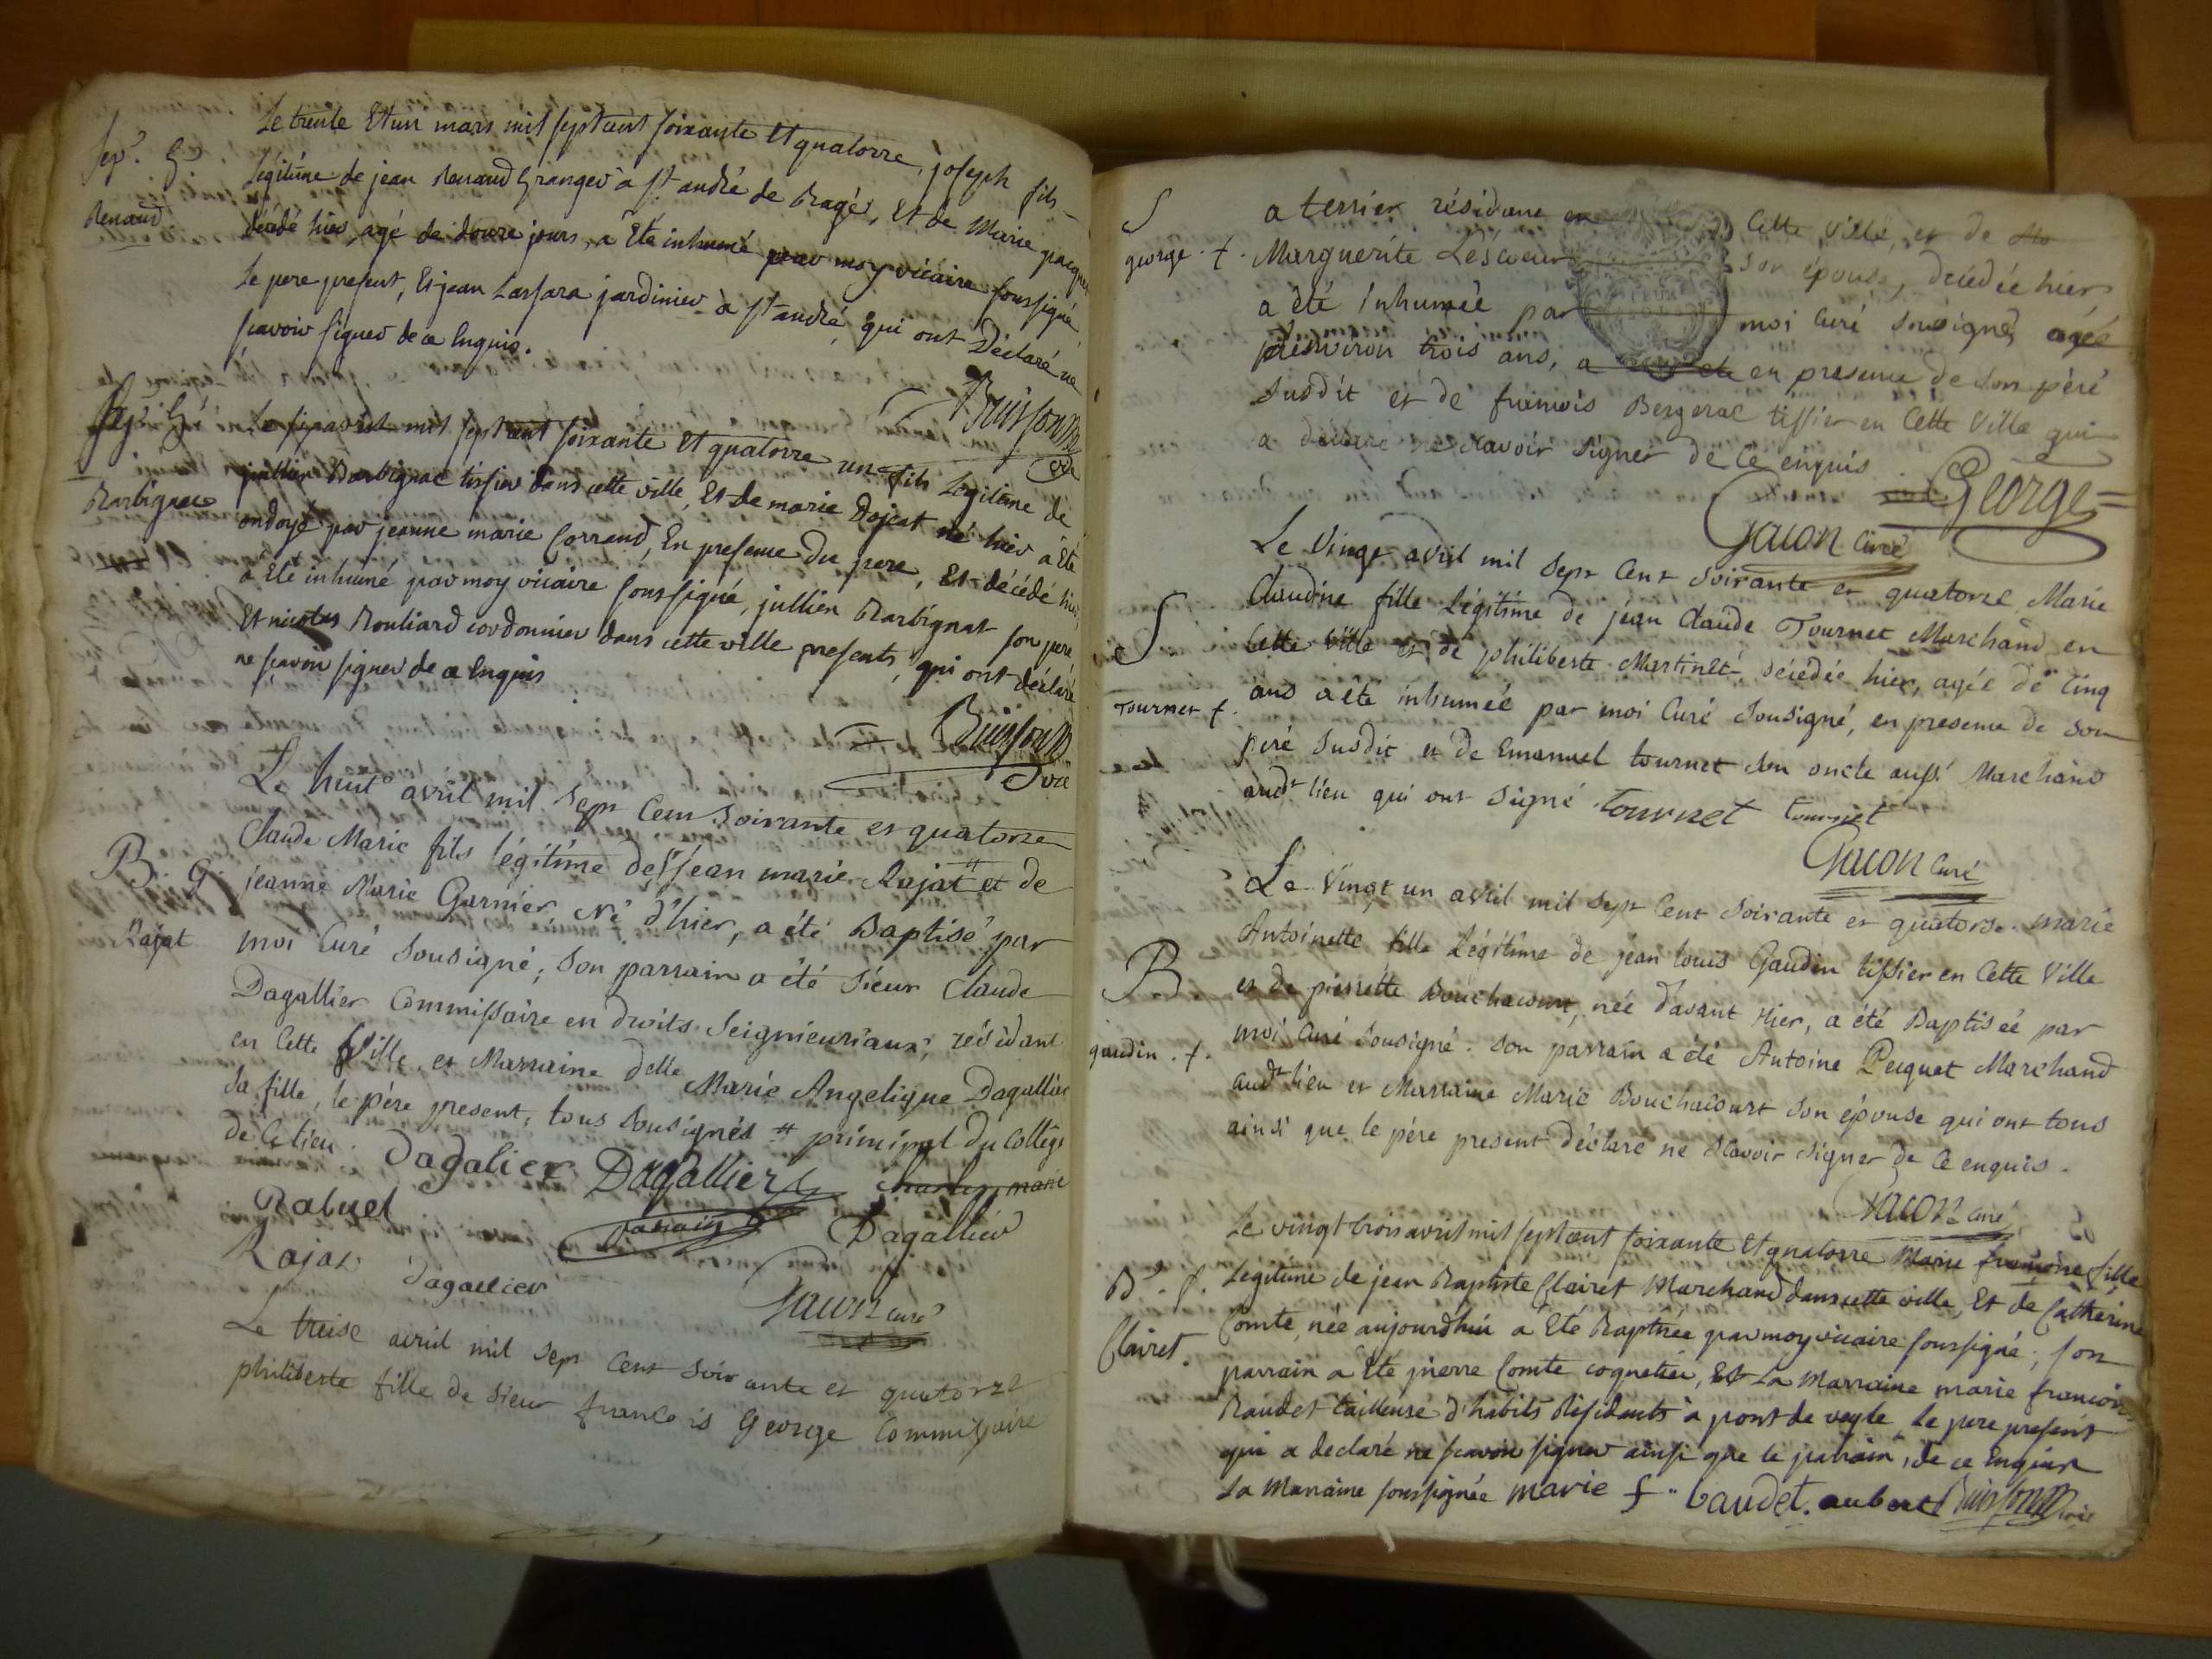 Le trente Et un mars mil sept cent soixante Et quatorze, joseph fils
Sep.r G.
Légitime de jean Renaud Granger à st andré de Bagé, Et de Marie pacquet
Renaud
décédé hier, agé de douze jours, a Eté inhumé par moy vicaire soussigné
Le pere present, Et jean Lassara jardinier à st andré, qui ont Déclaré ne
scavoir signer de ce Enquis.
Buisson
vic
Sep.r G.
Le six avril mil sept cent soixante Et quatorze un fils Légitime de
Barbignac
jullien Barbignac tissier dans cette ville, Et de marie Dojcat né hier a Eté
ondoyé par jeanne marie Corrand, En presence du pere, Et décédé hier,
a Eté inhumé par moy vicaire soussigné, jullien Barbignat son pere
Et nicolas Rouliard cordonnier dans cette ville presents, qui ont déclaré
ne scavoir signer de ce Enquis
Buisson
vic
Le huit avril mil sept Cent soixante et quatorze
Claude Marie fils légitime de sr jean marie Rajat # et de
B. G.
jeanne Marie Garnier, Né d'hier, a été Baptisé par
Rajat
moi Curé Sousigné; Son parrain a été Sieur Claude
Dagallier Commissaire en droits Seignieuriaux, résidant
en Cette Ville, et Marraine delle Marie Angelique Dagallier
Sa fille, le pére present, tous sousignés # principal du College
de Ce lieu. Dagalier Dagallier Charles, marie
Rabuel parain Dagallier
Rajat Dagallier Gacon curé
Le treise avril mil sept Cent Soixante et quatorze
philiberte fille de Sieur francois George Commissaire
S
a terrier résidant en Cette Ville, et de
george. f.
Marguerite Léscoeur son épouse, décédée hier
a été inhumée par moi Curé sousigné, agée
d'environ trois ans, en presence de son péré
Susdit et de francois Bergerac tissier en Cette Ville qui
a déclaré ne scavoir signer de Ce enquis. George
Gacon Curé
Le Vingt avril mil sept Cent soixante et quatorze Marie
Claudine fille Légitime de jean Claude Tournet Marchand en
S
Cette Ville et de philiberte Martinet décédée hier, agée de Cinq
Tournet f.
ans a été inhumée par moi Curé Sousigné, en presence de son
peré Susdit et de Emanuel tournet son oncle aussi Marchand
audt lieu qui ont signé tournet tournet
Gacon Curé
Le Vingt un avril mil sept Cent soixante et quatorse. marie
Antoinette fille Légitime de jean louis Gaudin tissier en Cette Ville
B
et de pierrétte Bouchacourt, née d'avant Hier, a été Baptisée par
gaudin. f.
moi Curé sousigné. Son parrain a été Antoine Pecquet Marchand
audt lieu et Marraine Marie Bouchacourt son épouse qui ont tous
ainsi que le pére present déclaré ne scavoir signer de Ce enquis.
Gacon curé
Le vingt trois avril mil sept cent soixante Et quatorze Marie francoise fille
B. f.
Legitime de jean Baptiste Clairet Marchand dans cette ville, Et de Catherine
Clairet.
Comte, née aujourdhui a Eté Baptisée par moy vicaire soussigné; son
parrain a Eté pierre Comte coquetier, Et La Marraine marie francoise
Baudet tailleuse d'habits Résidants à pont de veyle Le pere present
qui a declaré ne scavoir signer ainsi que le parrain, de ce Enquis
La Marraine soussignée marie f.. baudet. aubert Buisson vic